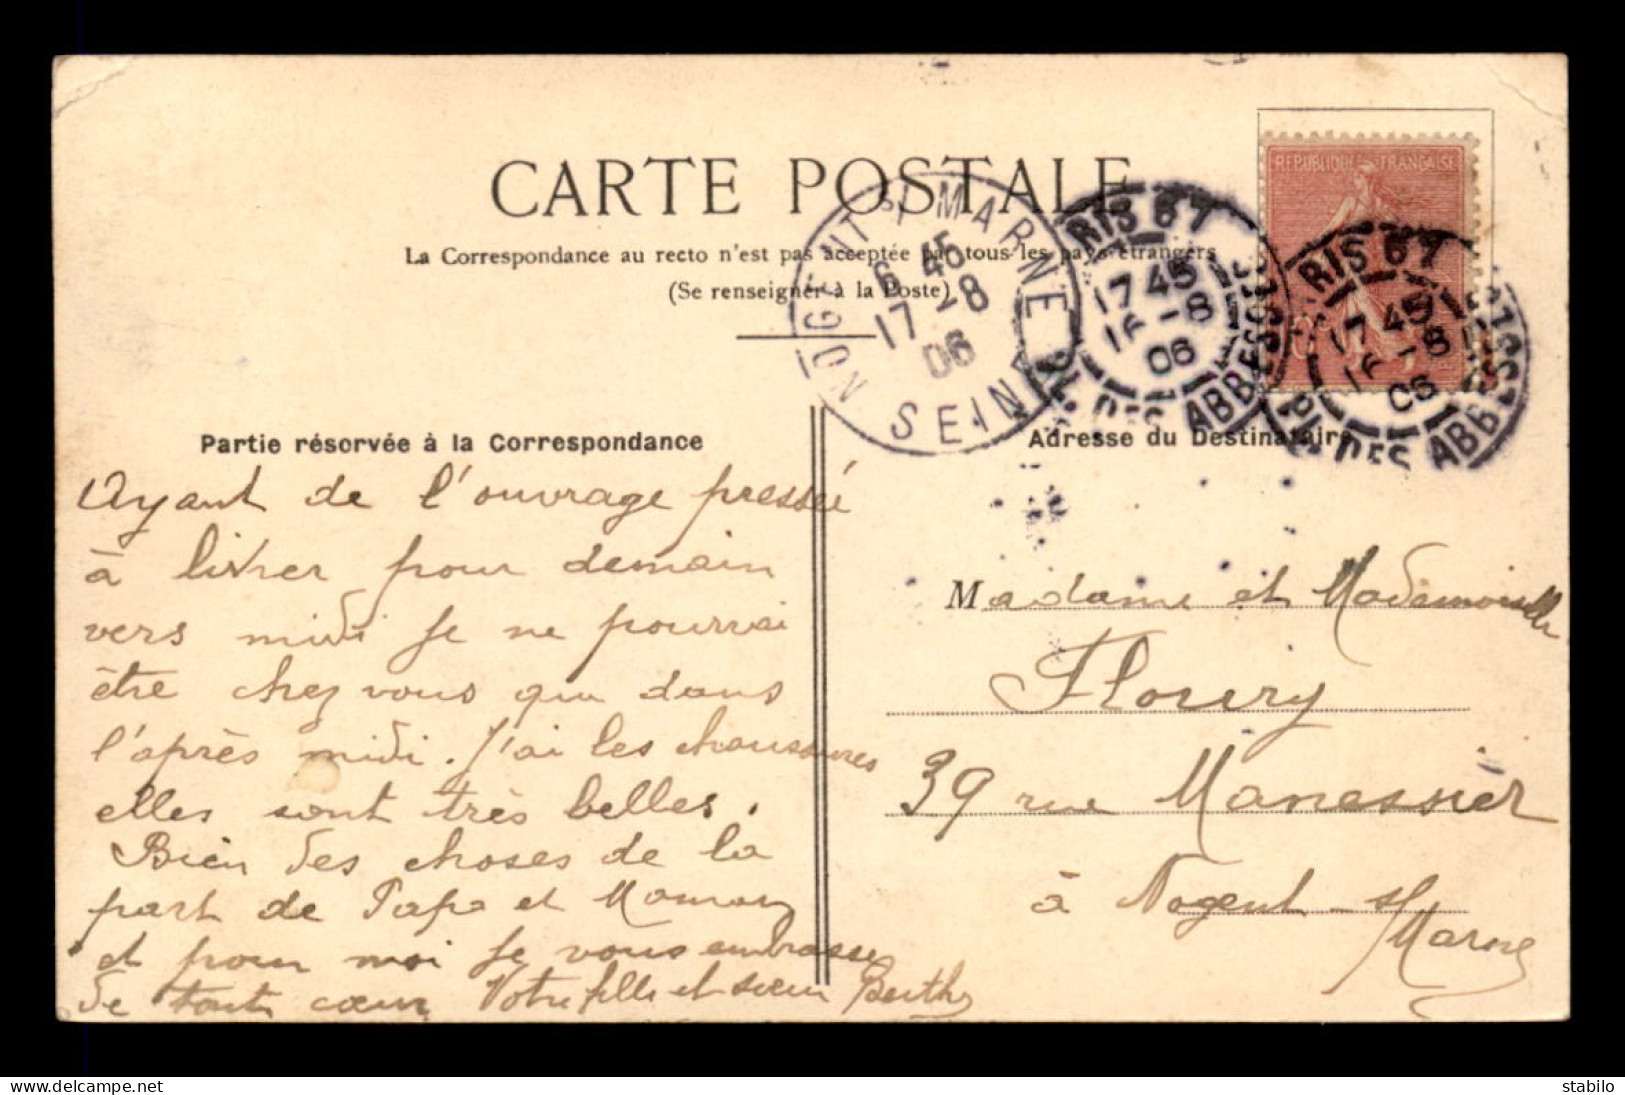 CARTE POSTALE
La Correspondance au recto n'est pas acceptée par tous les pays étrangers
(Se renseigner à la Poste)
REPUBLIQUE FRANÇAISE
NOGENT S/ MARNE
6 45
17-8
06
SEINE
PARIS 67
17 45
16-8
06
PL. DES ABBESSES
PARIS 67
17 45
16-8
06
PL. DES ABBESSES
Partie réservée à la Correspondance
Ayant de l'ouvrage pressée
à livrer pour demain
vers midi je ne pourrai
être chez vous que dans
l'après midi. J'ai les chaussures
elles sont très belles.
Bien des choses de la
part de Papa et Maman
et pour moi je vous embrasse
de tout cœur Votre fille et sœur Berthe
Adresse du Destinataire
Madame et Mademoiselle
Floury
39 rue Manessier
à Nogent s/
Marne
www.delcampe.net
stabilo